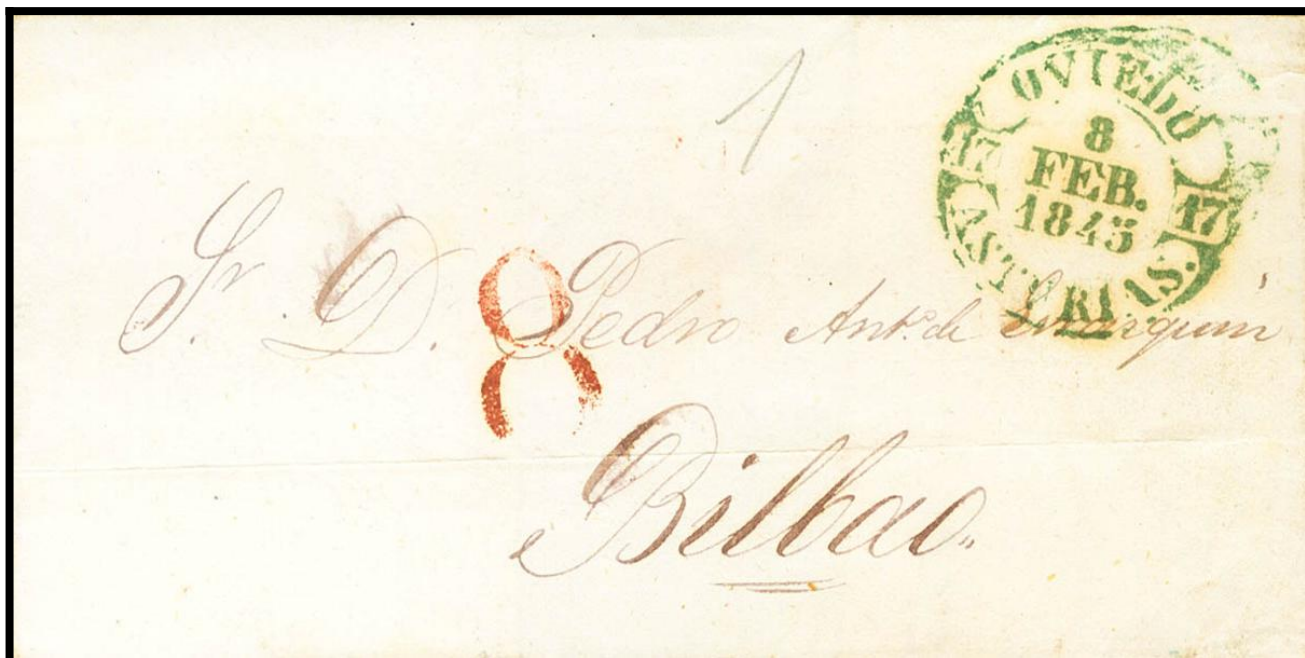 1
OVIEDO
17 17
8
FEB.
1845
ASTURIAS.
Sr. D. Pedro Anto. de
8
Bilbao.